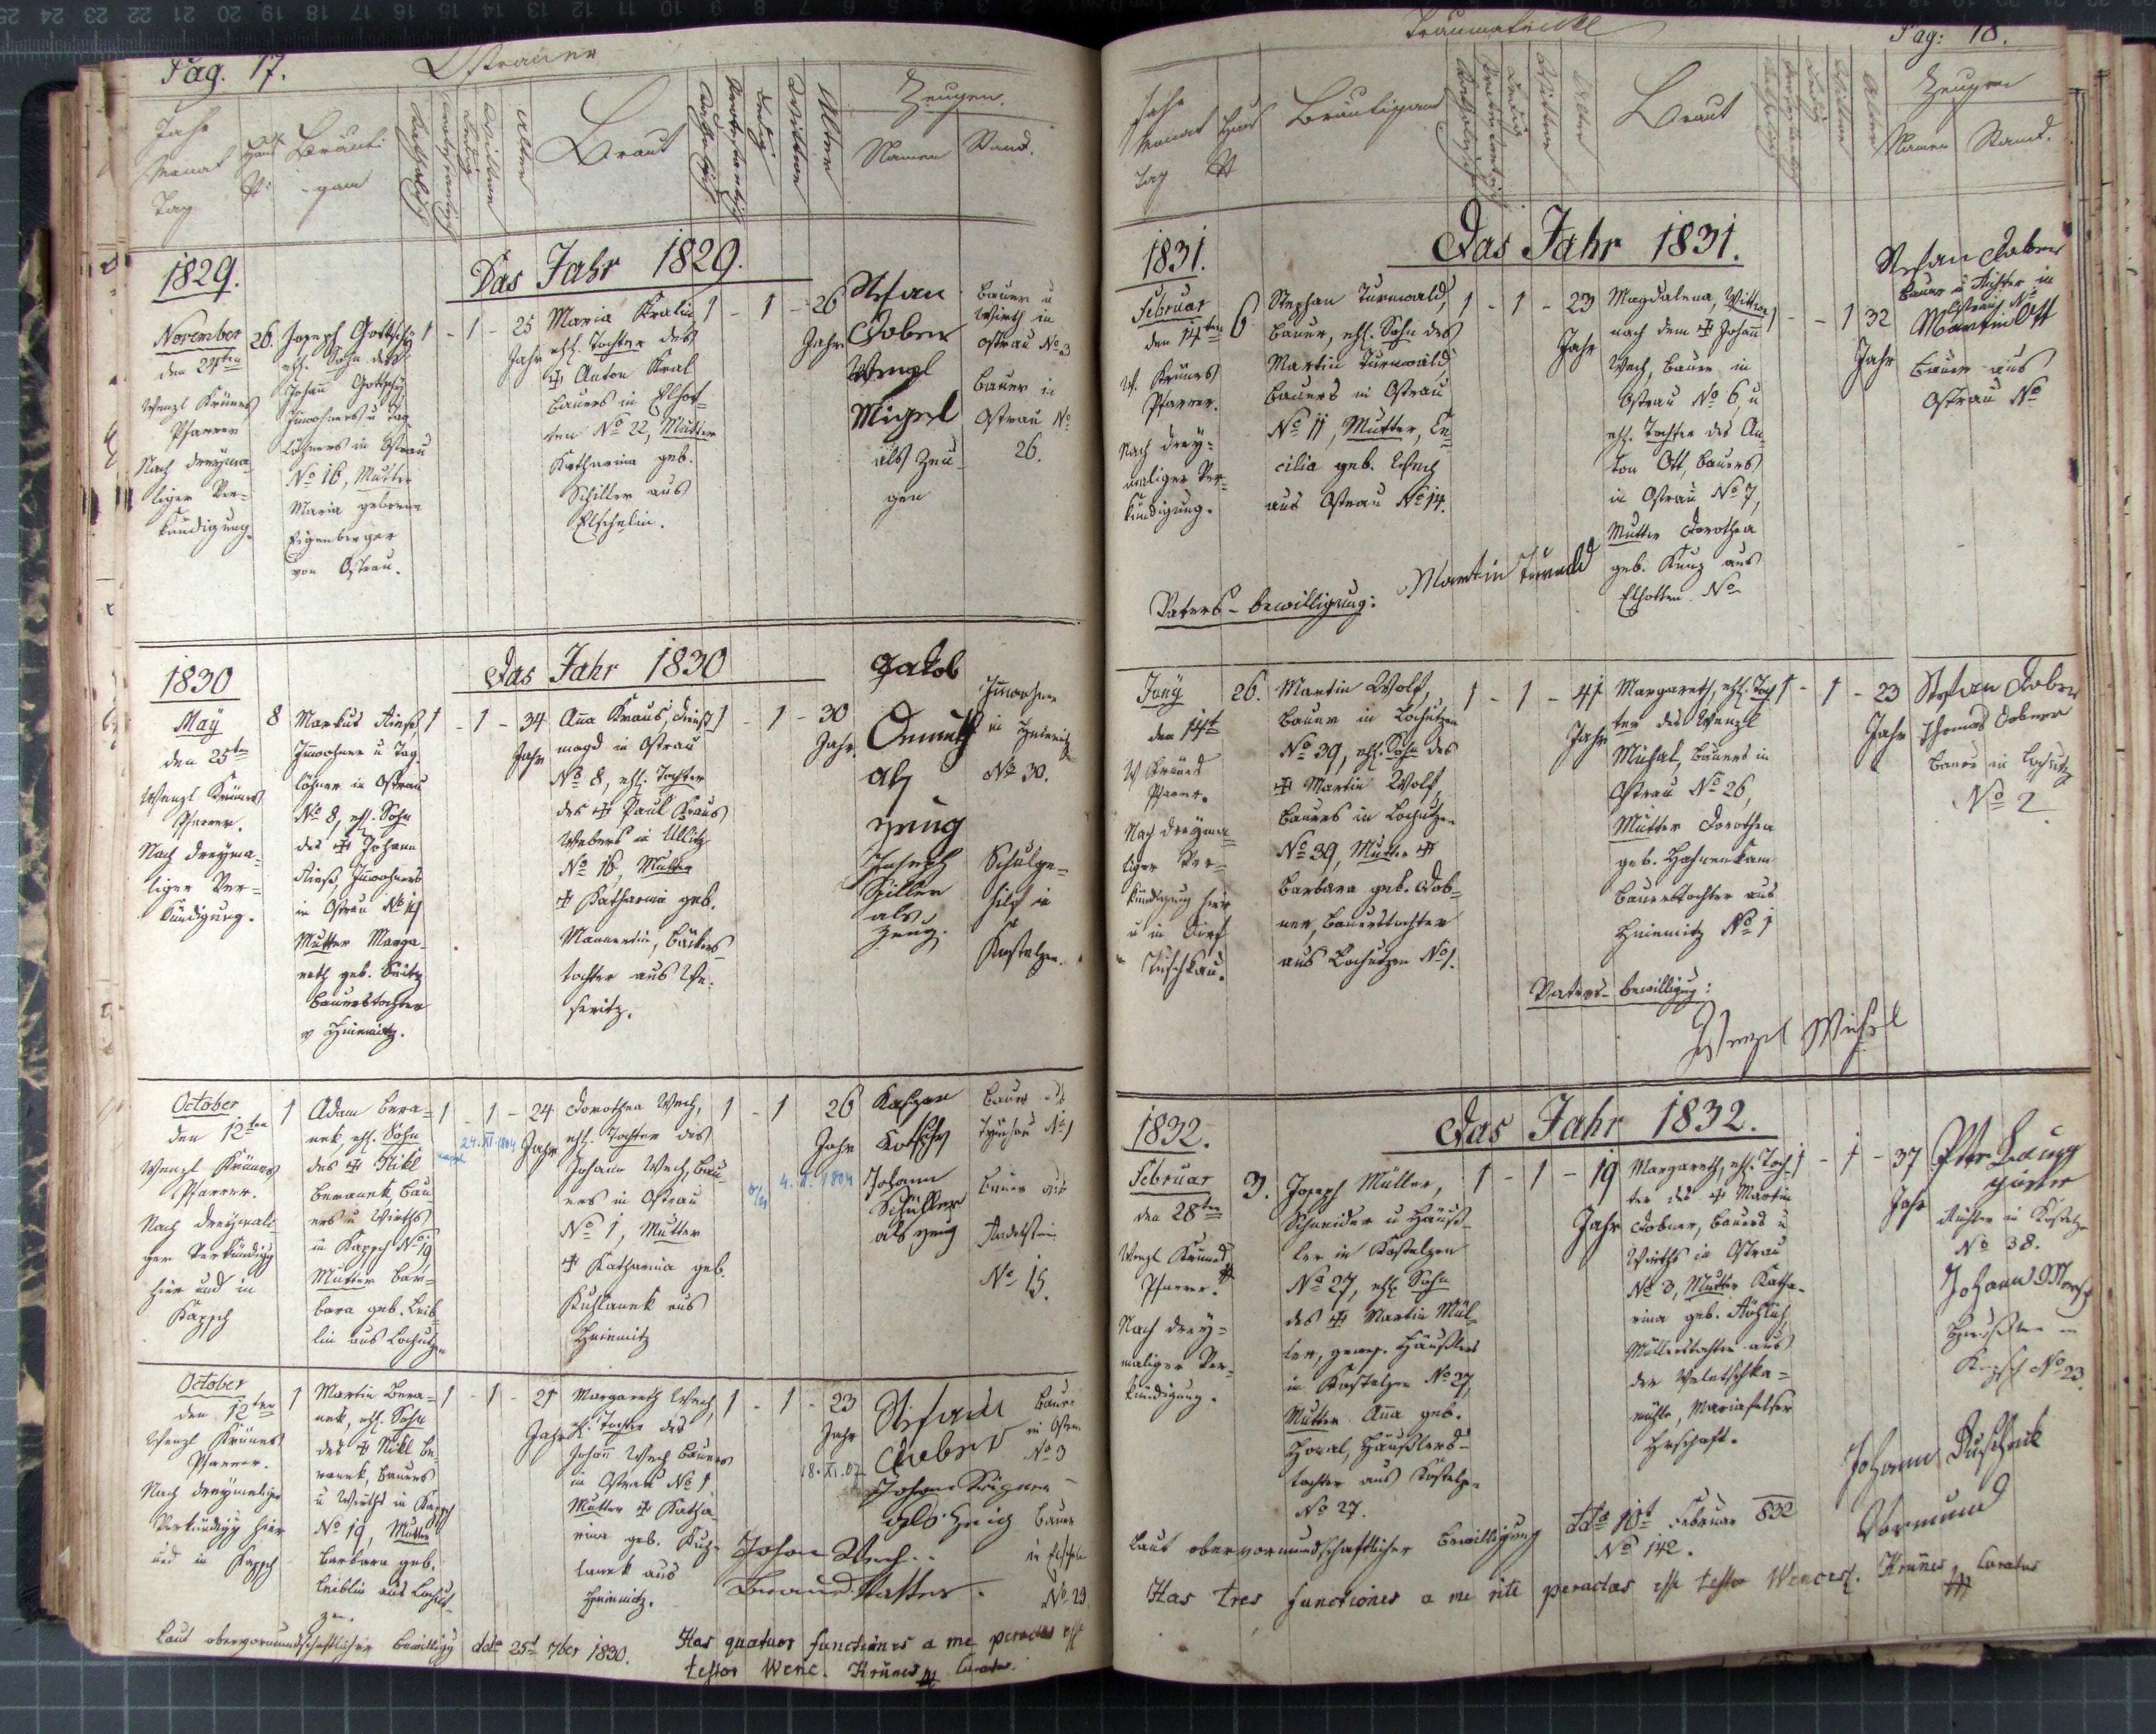 Pag. 17.
Ostrauer
Jahr
Monat
Tag
Haus
No
Bräuti-
gam
Katholisch
Ledig
Wittwer
Alter
Braut
Katholisch
Protestantisch
Ledig
Wittwe
Alter
Zeugen.
Namen
Stand.
Das Jahr 1829.
1829.
November
den 24ten
Wenzl Krünes
Pfarrer
Nach dreyma-
liger Ver-
kündigung.
26.
Joseph Gottschy
ehl. Sohn des
Johañ Gottschy
Inwohners u Tag-
löhners in Ostrau
No 16, Mutter
Maria geborne
Eigenberger
von Ostrau.
1 - 1 - 25
Jahr
Maria Kralin
ehl. Tochter des
✝ Anton Kral
Bauers in Elhot-
ten No 22, Mutter
Katharina geb.
Schiller aus
Elschelin.
1 - 1 - 26
Jahr
Stefan
Dober
Wenzl
Migsel
als Zeu-
gen
Bauer u
Wirth in
Ostrau No 3
Bauer in
Ostrau No
26.
Das Jahr 1830
1830
May
den 25ten
Wenzl Krünes
Pfarrer.
Nach dreyma-
liger Ver-
kündigung.
8
Markus Rieß,
Inwohner u Tag-
löhner in Ostrau
No 8, ehl. Sohn
des ✝ Johann
Rieß Inwohners
in Ostrau No 14
Mutter Marga-
reth geb. Seitz
Bauerstochter
v Hniemitz.
1 - 1 - 34
Jahr
Aña Kraus, Dienst-
magd in Ostrau
No 8, ehl. Tochter
des ✝ Paul Kraus
Webers in Ullitz
No 16, Mutter
✝ Katharina geb.
Mannertin, Bäckers-
tochter aus We-
seritz.
1 - 1 - 30
Jahr
Jakob
als
zeug
Joseph
Hiller
als
Zeug.
Inwohner
in Hniemitz
No 30.
Schulge-
hilf in
Kostelzen.
October
den 12ten
Wenzl Krünes
Pfarrer.
Nach dreymali-
ger Verkündigg
hier und in
Kapsch
1
Adam Bera-
nek, ehl. Sohn
des ✝ Nikl
Beranek Bau-
ers u Wirths
in Kapsch No 19
Mutter Bar-
bara geb. Leib-
lin aus Lochutzen
1 1 - 24
Jahr
24. XI. 1804
Dorothea Wech,
ehl. Tochter des
Johann Wech, Bau-
ers in Ostrau
No 1, Mutter
✝ Katharina geb.
Kuhlanek aus
Hniemitz
1 - 1 26
Jahr
4. II. 1804
Kaspar
Kotschy
Johann
Schüller
als zeug
Bauer
No 1
Bauer aus
No 15.
October
den 12ten
Wenzl Krünes
Pfarrer.
Nach dreymaliger
Verkündigg hier
und in Kapsch
1
Martin Bera-
nek, ehl. Sohn
des ✝ Nikl Be-
ranek, Bauers
u Wirths in Kapsch
No 19, Mutter
Barbara geb.
Leiblin aus Lochut-
zen.
1 - 1 - 21
Jahr
Margareth Wech,
ehl. Tochter des
Johañ Wech Bauers
in Ostrau No 1
Mutter ✝ Katha-
rina geb. Kuh-
lanek aus
Hniemitz.
1 - 1 - 23
Jahr
18. XI. 07
Stefan
Dober
Johann
als Zeug
Bauer
in Ostrau
No 3
Bauer
No 29
Johan Wech..
Braud Vatter.
Laut obervormundschaftlicher Bewilligg ddo 25t 7ber 1830.
Has quatuor functiones a me peractas esse
testor Wenc. Krünes Curatus.
Traumatrickl
Pag: 18.
Jahr
Monat
Tag
Haus
No
Bräutigam
Katholisch
Protestantisch
Ledig
Wittwer
Alter
Braut
Katholisch
Ledig
Wittwe
Alter
Zeugen
Namen
Stand.
Das Jahr 1831.
1831.
Februar
den 14ten
W. Krünes
Pfarrer.
Nach drey-
maliger Ver-
kündigung.
6
Stephan Turnwald,
Bauer, ehl. Sohn des
Martin Turnwald,
Bauers in Ostrau
No 11, Mutter, Ce-
cilia geb. Wech
aus Ostrau No 14.
1 - 1 - 23
Jahr
Magdalena, Wittwe
nach dem ✝ Johañ
Wech, Bauer in
Ostrau No 6, u
ehl. Tochter des An-
ton Ott, Bauers
in Ostrau No 7,
Mutter Dorothea
geb. Kunz aus
Elhotten No
1 - - 1 32
Jahr
Stefan Dober
Bauer u Richter in
Ostrau No
Martin Ott
Bauer aus
Ostrau No
Vaters-Bewilligung:
Martin Turnwald
Juny
den 14t
W Krünes
Pfarrer.
Nach dreyma-
liger Ver-
kündigung hier
u in Dorf
Tuschkau.
26.
Martin Wolf,
Bauer in Lochutzen
No 39, ehl. Sohn des
✝ Martin Wolf,
Bauers in Lochutzen
No 39, Mutter ✝
Barbara geb. Dob-
ner, Bauerstochter
aus Lochutzen No 1.
1 - 1 - 41
Jahr
Margareth, ehl. Toch-
ter des Wenzl
Michal, Bauers in
Ostrau No 26,
Mutter Dorothea
geb. Hahnenkam
Bauerstochter aus
Hniemitz No 1
1 - 1 - 23
Jahr
Stefan Dober
Thomas Dobner
Bauer in Lochutz
No 2
Vaters-Bewilligug:
Wenzl Michsl
Das Jahr 1832.
1832.
Februar
den 28ten
Wenzl Krünes
Pfarrer.
Nach drey-
maliger Ver-
kündigung.
3.
Joseph Müller,
Schneider u Häuß-
ler in Kostelzen
No 27, ehl. Sohn
des ✝ Martin Mül-
ler, gewes. Häußlers
in Kostelzen No 27,
Mutter Aña geb.
Horal, Häußlers-
tochter aus Kostelzen
No 27.
1 - 1 - 19
Jahr
Margareth, ehl. Toch-
ter des ✝ Martin
Dobner, Bauers u
Wirths in Ostrau
No 3, Mutter Katha-
rina geb.
Müllerstochter aus
der Weletschka-
mühle, Mariafelser
Hrschaft.
1 - 1 - 37
Jahr
Richter in Kostelzen
No 38.
Johann
Häußler in
No 23.
Johann Duschek
Vormund
Laut obervormundschaftlicher Bewilligung ddo 10t Februar 832
No 142.
Has tres functiones a me rite peractas esse testor Wencesl. Krünes Curatus